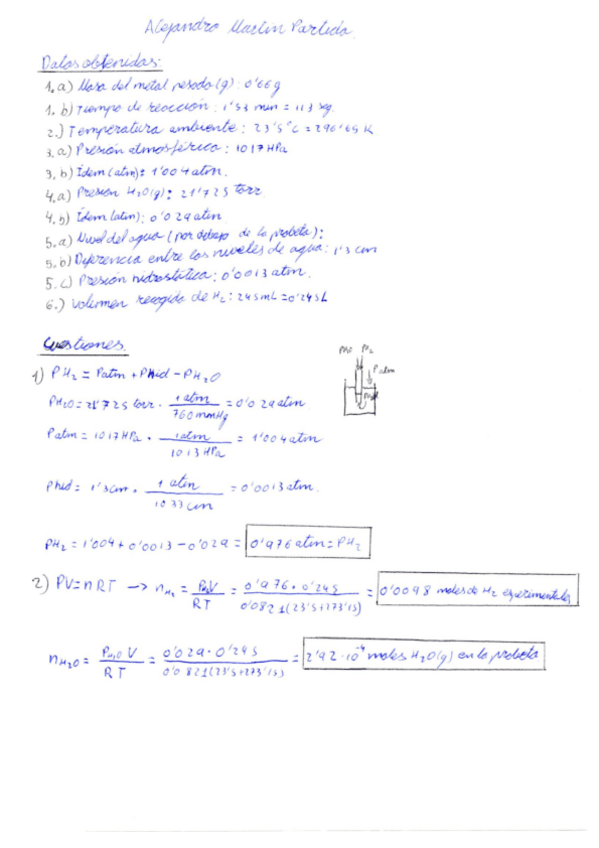 Alejandro Martin Partida.
Datos obtenidos:
1. a) Masa del metal pesado (g): 0'66g
1. b) Tiempo de reacción: 1'53 min = 113 seg.
2.) Temperatura ambiente: 23'5°C = 296'65 K
3. a) Presión atmosférica: 1017 HPa
3. b) Ídem (atm): 1'004 atm.
4. a) Presión H2O(g): 21'725 torr
4. b) Ídem (atm): 0'029 atm
5. a) Nivel del agua (por debajo de la probeta):
5. b) Diferencia entre los niveles de agua: 1'3 cm
5. c) Presión hidrostática: 0'0013 atm.
6.) Volumen recogido de H2: 245mL = 0'245L
Cuestiones.
1) PH2 = Patm + Phid - PH2O
PH2O = 21'725 torr · 1 atm / 760 mmHg = 0'029 atm
Patm = 1017 HPa · 1 atm / 1013 HPa = 1'004 atm
Phid = 1'3 cm · 1 atm / 1033 cm = 0'0013 atm.
PH2 = 1'004 + 0'0013 - 0'029 = 0'976 atm = PH2
2) PV = nRT → nH2 = PH2V / RT = 0'976 · 0'245 / 0'0821(23'5+273'15) = 0'0098 moles de H2 experimentales
nH2O = PH2O V / RT = 0'029 · 0'245 / 0'0821(23'5+273'15) = 2'92·10⁻⁴ moles H2O(g) en la probeta
P atm